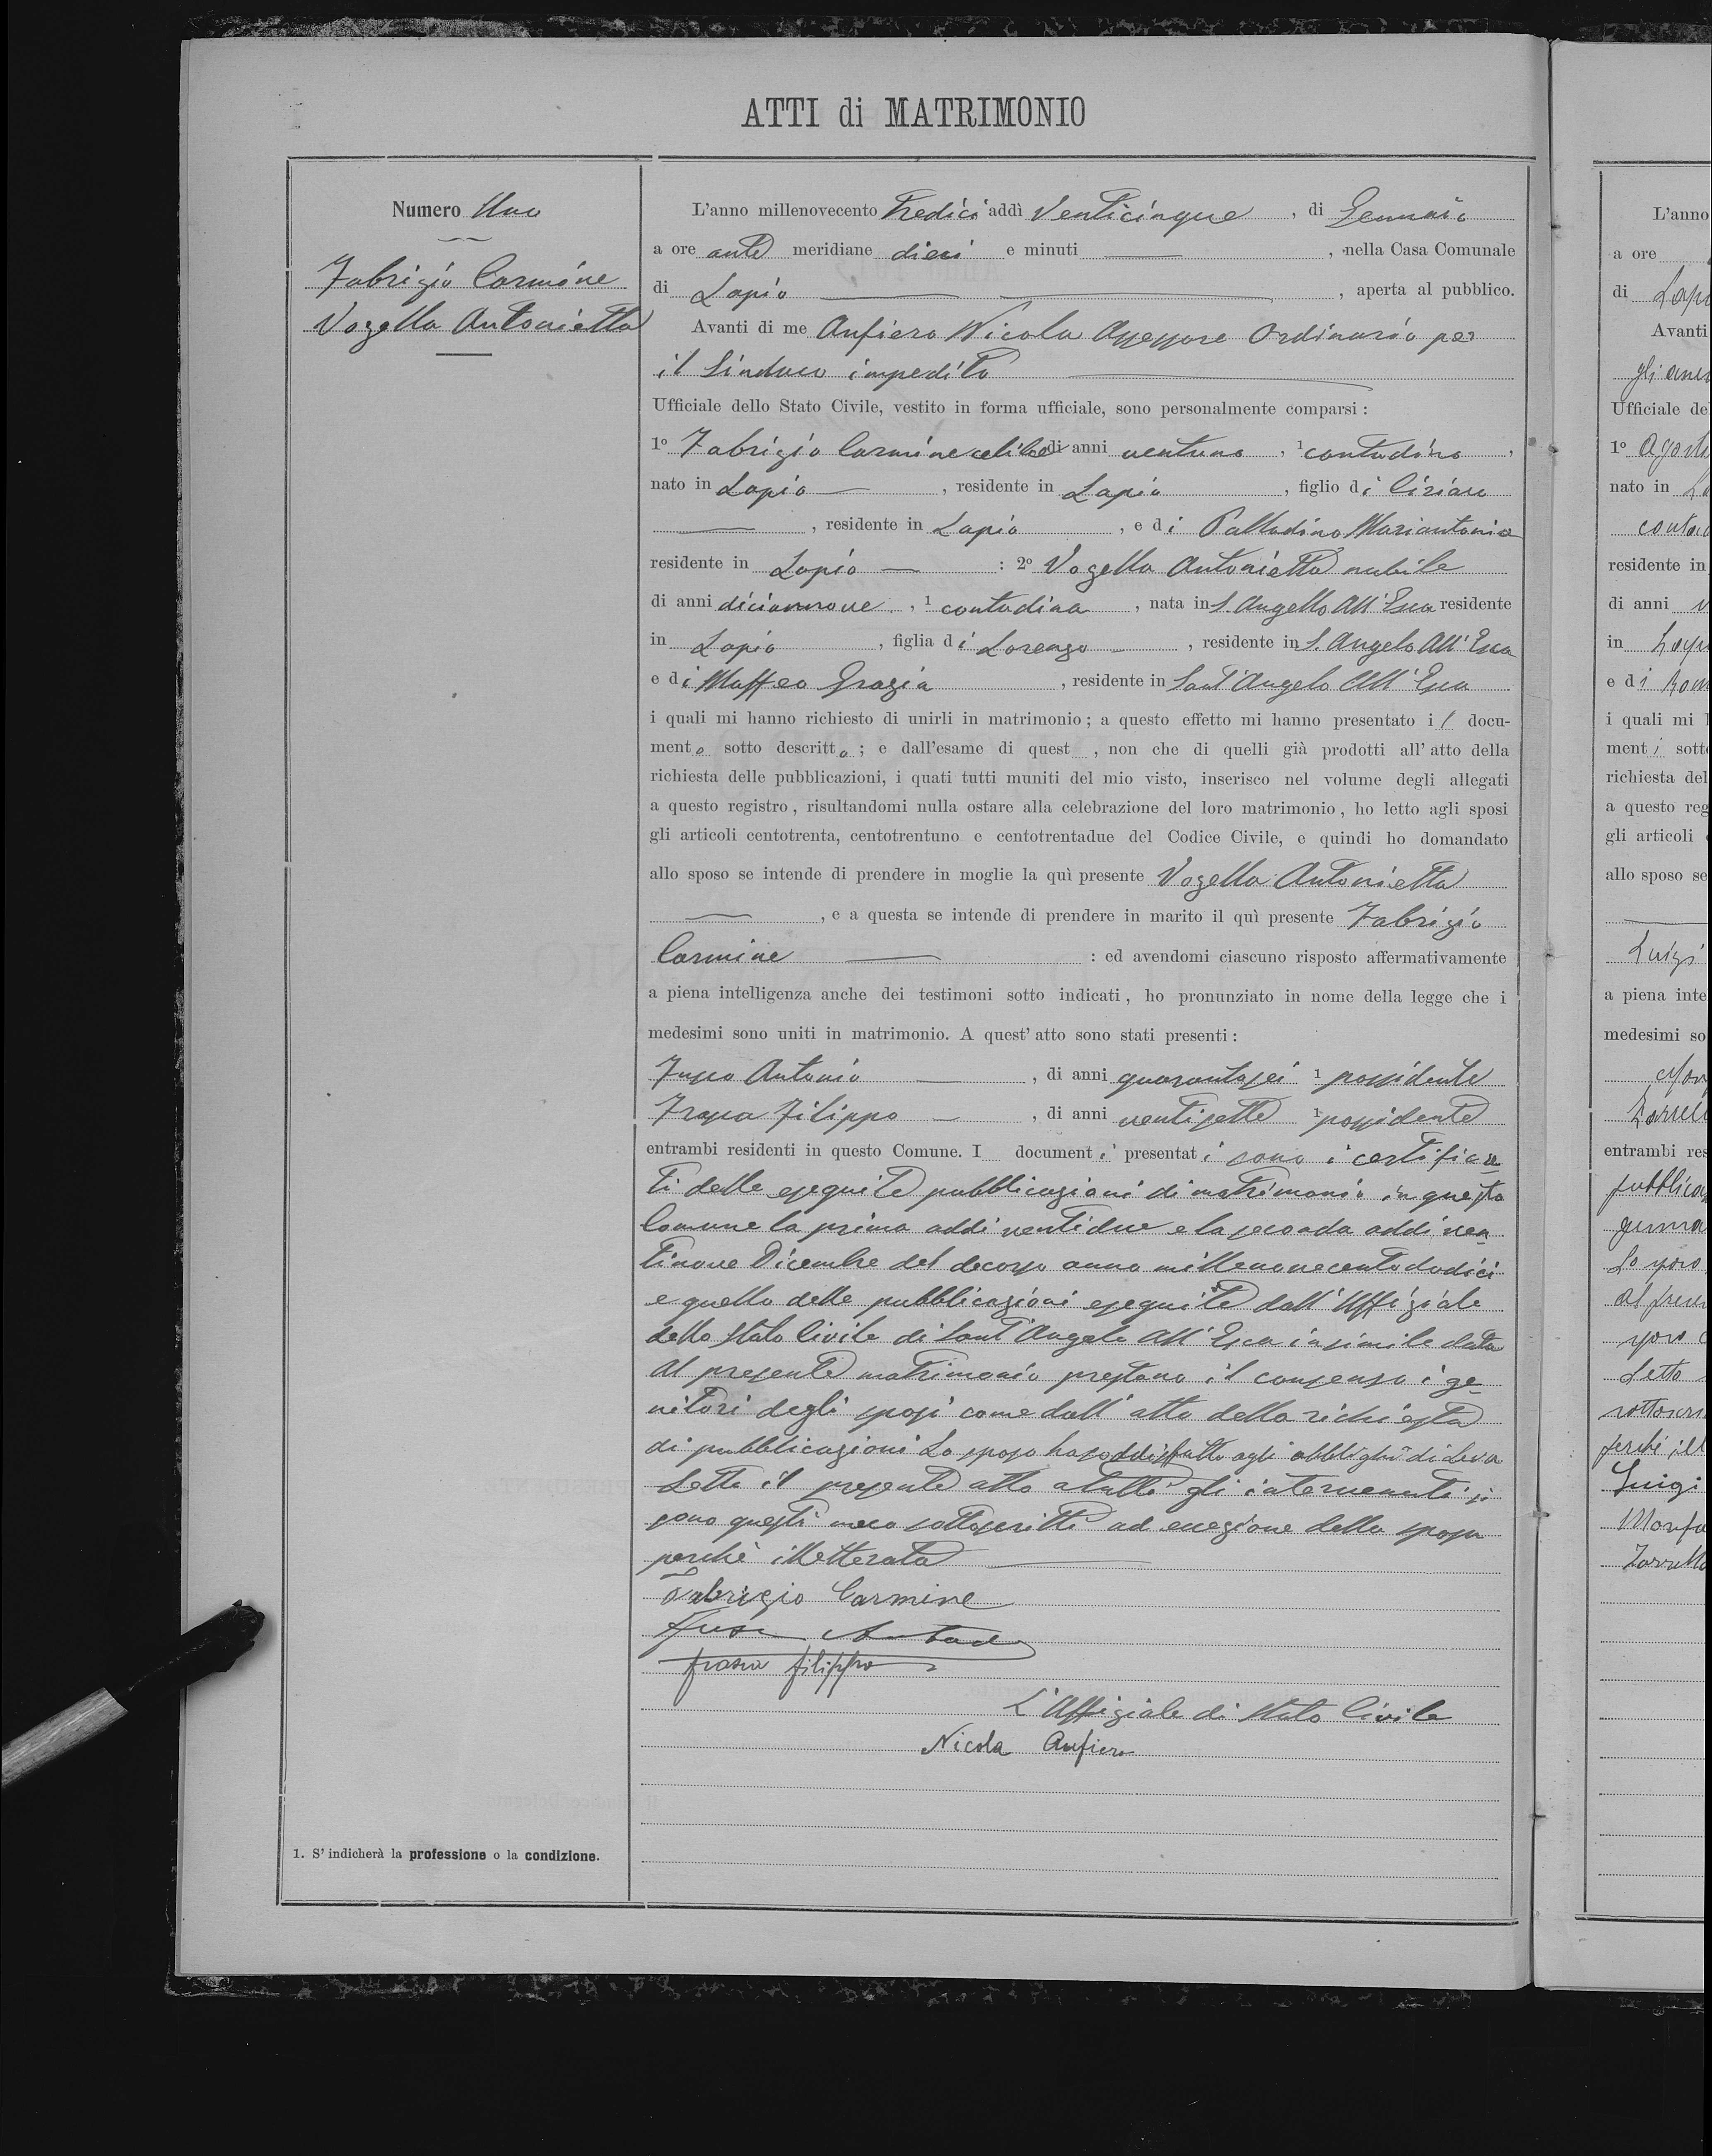 ATTI di MATRIMONIO
Numero Uno
Fabrizio Carmine
Vozella Antonietta
1. S'indicherà la professione o la condizione.
L'anno millenovecento Tredici addì Venticinque, di Gennaio
a ore ante meridiane dieci e minuti, nella Casa Comunale
di Lapio, aperta al pubblico.
Avanti di me Anfiero Nicola Assessore Ordinario per
il Sindaco impedito
Ufficiale dello Stato Civile, vestito in forma ufficiale, sono personalmente comparsi:
1º Fabrizio Carmine celibe di anni ventuno, 1 contadino,
nato in Lapio, residente in Lapio, figlio di Ciriaco
, residente in Lapio, e di Palladino Mariantonia
residente in Lapio : 2º Vozella Antonietta nubile
di anni diciannove, 1 contadina, nata in S. Angello All'Esca residente
in Lapio, figlia di Lorenzo, residente in S. Angelo All'Esca
e di Maffeo Grazia, residente in Sant'Angelo All'Esca
i quali mi hanno richiesto di unirli in matrimonio; a questo effetto mi hanno presentato il docu-
mento sotto descritto; e dall'esame di quest , non che di quelli già prodotti all'atto della
richiesta delle pubblicazioni, i quati tutti muniti del mio visto, inserisco nel volume degli allegati
a questo registro, risultandomi nulla ostare alla celebrazione del loro matrimonio, ho letto agli sposi
gli articoli centotrenta, centotrentuno e centotrentadue del Codice Civile, e quindi ho domandato
allo sposo se intende di prendere in moglie la quì presente Vozella Antonietta
, e a questa se intende di prendere in marito il quì presente Fabrizio
Carmine : ed avendomi ciascuno risposto affermativamente
a piena intelligenza anche dei testimoni sotto indicati, ho pronunziato in nome della legge che i
medesimi sono uniti in matrimonio. A quest'atto sono stati presenti:
Fusco Antonio, di anni quarantasei 1 possidente
Frasca Filippo, di anni ventisette 1 possidente
entrambi residenti in questo Comune. I documenti presentati sono i certifica
ti delle eseguite pubblicazioni di matrimonio in questo
Comune la prima addi ventidue e la seconda addi ven
tinove Dicembre del decorso anno millenovecentododici
e quello delle pubblicazioni eseguite dall'Uffiziale
dello Stato Civile di Sant'Angelo All'Esca in simile data
Al presente matrimonio prestano il consenso i ge
nitori degli sposi come dall'atto della richiesta
di pubblicazioni Lo sposo ha soddisfatto agli obblighi di Leva
Letto il presente atto a tutti gli intervenuti si
sono questi meco sottoscritti ad eccezione della sposa
perchè illetterata
Fabrizio Carmine
Fusco Antonio
frasca filippo
L'Uffiziale di Stato Civile
Nicola Anfiero
L'anno
a ore
di
Avanti
Ufficiale de
1º
nato in
residente in
di anni
in
e di
i quali mi
menti sotto
richiesta del
a questo reg
gli articoli
allo sposo se
Luigi
a piena inte
medesimi so
entrambi res
Luigi